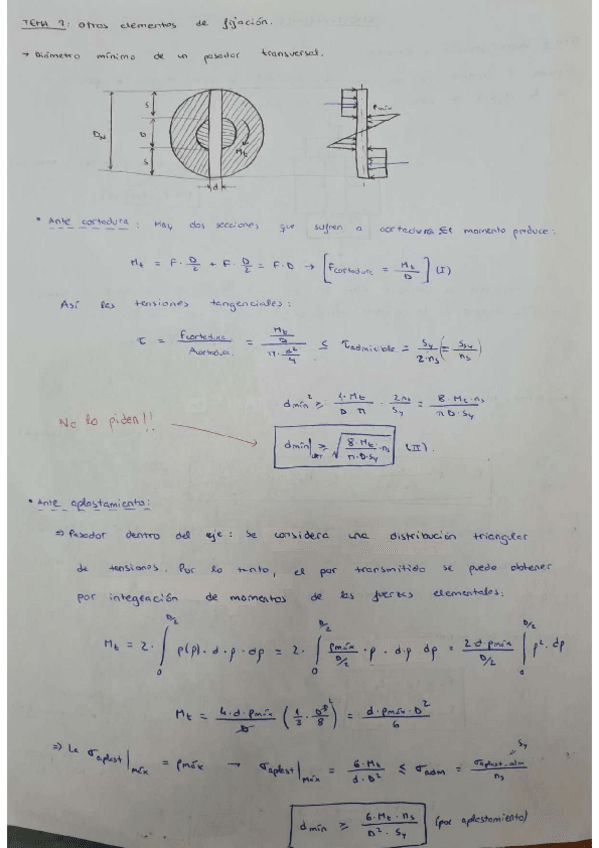 TEMA 7: Otros elementos de fijación.
→ Diámetro mínimo de un pasador transversal.
S
D
S
D₂
Mt
d
Pmáx
• Ante cortadura: Hay dos secciones que sufren a cortadura. El momento produce:
Mt = F · D/2 + F · D/2 = F · D → [Fcortadura = Mt/D] (I)
Así las tensiones tangenciales:
τ = Fcortadura/Acortadura = (Mt/D)/(π · d²/4) ≤ τadmisible = Sy/(2·ns) (= Ssy/ns)
dmín² ≥ 4·Mt/(D π) · 2ns/Sy = 8·Mt·ns/(π D·Sy)
No lo piden!!
dmín ≥ √(8·Mt/(π·D·Sy) · ns) (II).
• Ante aplastamiento:
⇒ Pasador dentro del eje: se considera una distribución triangular
de tensiones. Por lo tanto, el par transmitido se puede obtener
por integración de momentos de las fuerzas elementales:
Mt = 2 · ∫₀^(D/2) p(ρ) · d · ρ · dρ = 2 · ∫₀^(D/2) pmáx/(D/2) · ρ · d·ρ dρ = 2·d·pmáx/(D/2) ∫₀^(D/2) ρ² · dρ
Mt = 4·d·pmáx/D (1/3 · D³/8) = d·pmáx·D²/6
⇒ La σaplast|máx = pmáx → σaplast|máx = 6·Mt/(d·D²) ≤ σadm = σaplast.adm/ns
Sy
dmín ≥ 6·Mt·ns/(D²·Sy) (por aplastamiento)